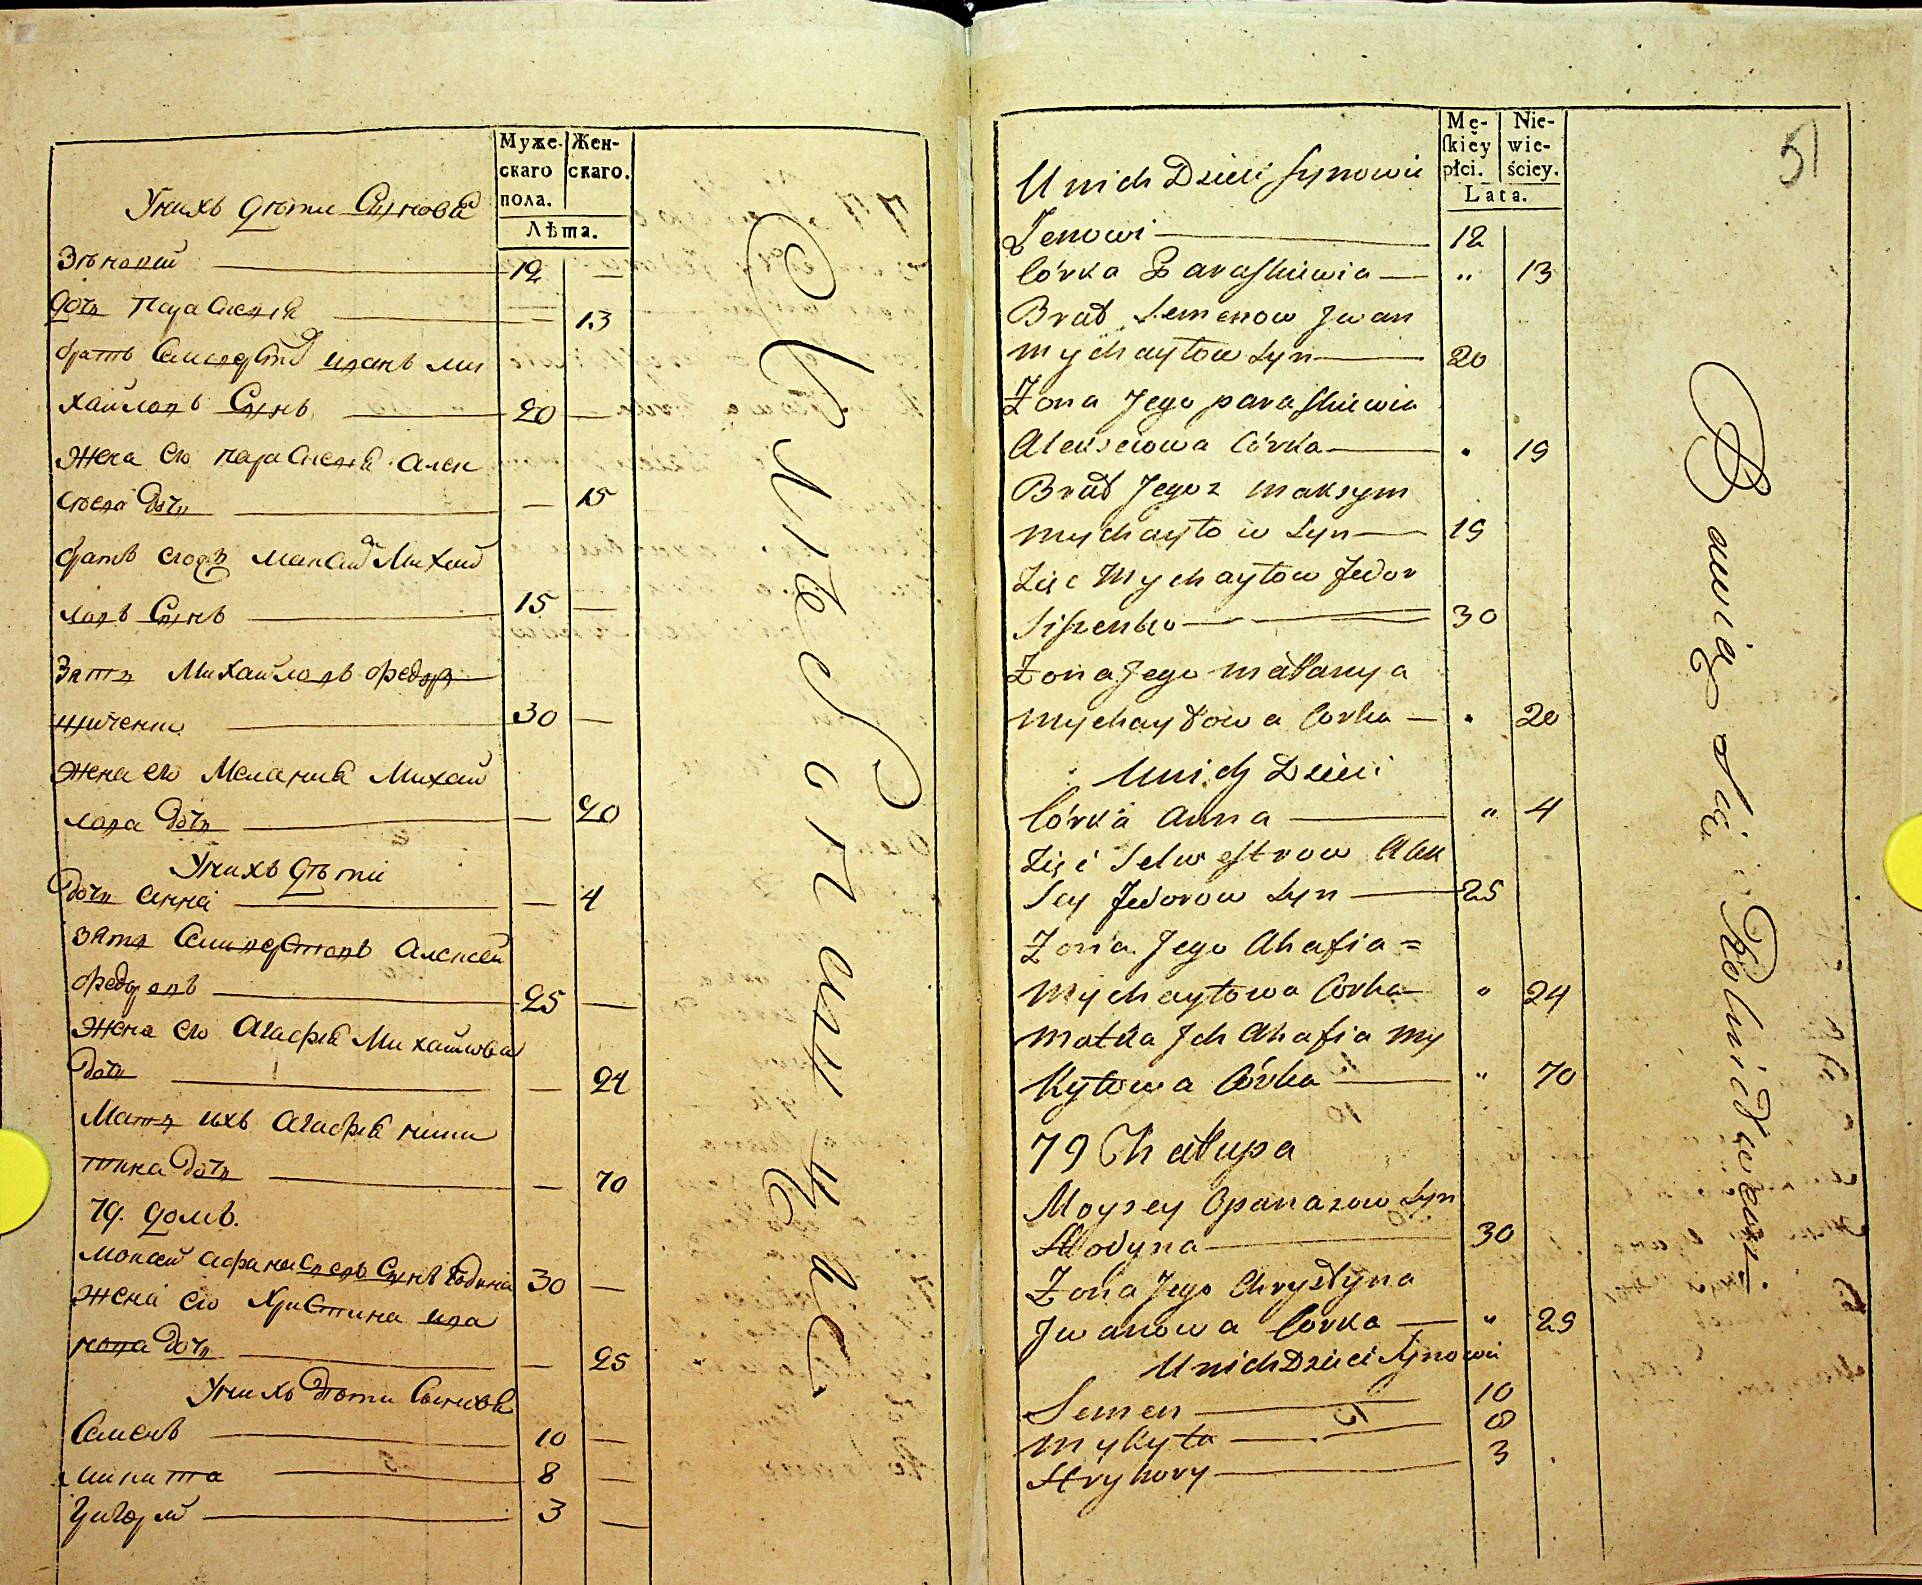 Муже-
скаго
пола.
Жен-
скаго.
Лѣта.
Унихъ дѣти Сыновя
Зѣновій 12 —
дочь Параскевія — 13
братъ Силвестра иванъ Ми
хайловъ Сынъ 20 —
Жена его параскевія Алек
сѣева дочь — 15
братъ егожъ Максимъ Михай
ловъ Сынъ 15 —
Зять Михайловъ Федоръ
30 —
Жена его Меланія Михай
лова дочь — 20
Унихъ дѣти
дочь анна — 4
зять Силвестровъ Алексей
Федоровъ 25 —
Жена его Агафія Михайлова
дочь — 24
Мать ихъ агафія ники
тина дочь — 70
79. домъ.
Мойсей афанасіевъ Сынъ Годына 30 —
жена его Христина ива
нова дочь — 25
Унихъ дѣти Сыновя
Семенъ 10 —
Микита 8 —
Григорій 3 —
51
Mę-
skiey
płci.
Nie-
wie-
ściey.
Lata.
U nich Dzieci Synowie
Zenowi 12
Córka Paraskiewia „ 13
Brat Semenow Jwan
Mychayłow Syn 20
Żona Jego paraskiewia
Alexiejowa Córka „ 19
Brat Jegoz Maksym
Mychayłow Syn 19
Zięć Mychayłow Fedor
30
Żona Jego Małanya
Mychayłowa Corka „ 20
U nich Dzieci
Córka Anna „ 4
Zięć Selwestrow Alek
sey Fedorow Syn 25
Żona Jego Ahafia =
Mychayłowa Corka „ 24
Matka Jch Ahafia My
kytowa Córka „ 70
79 Chałupa
Moysey Opanazow Syn
Hodyna 30
Żona Jego Chrystyna
Jwanowa Corka „ 25
U nich Dzieci Synowie
Semen 10
Mykyta 8
Hryhory 3
Bawią się Rolnictwem.